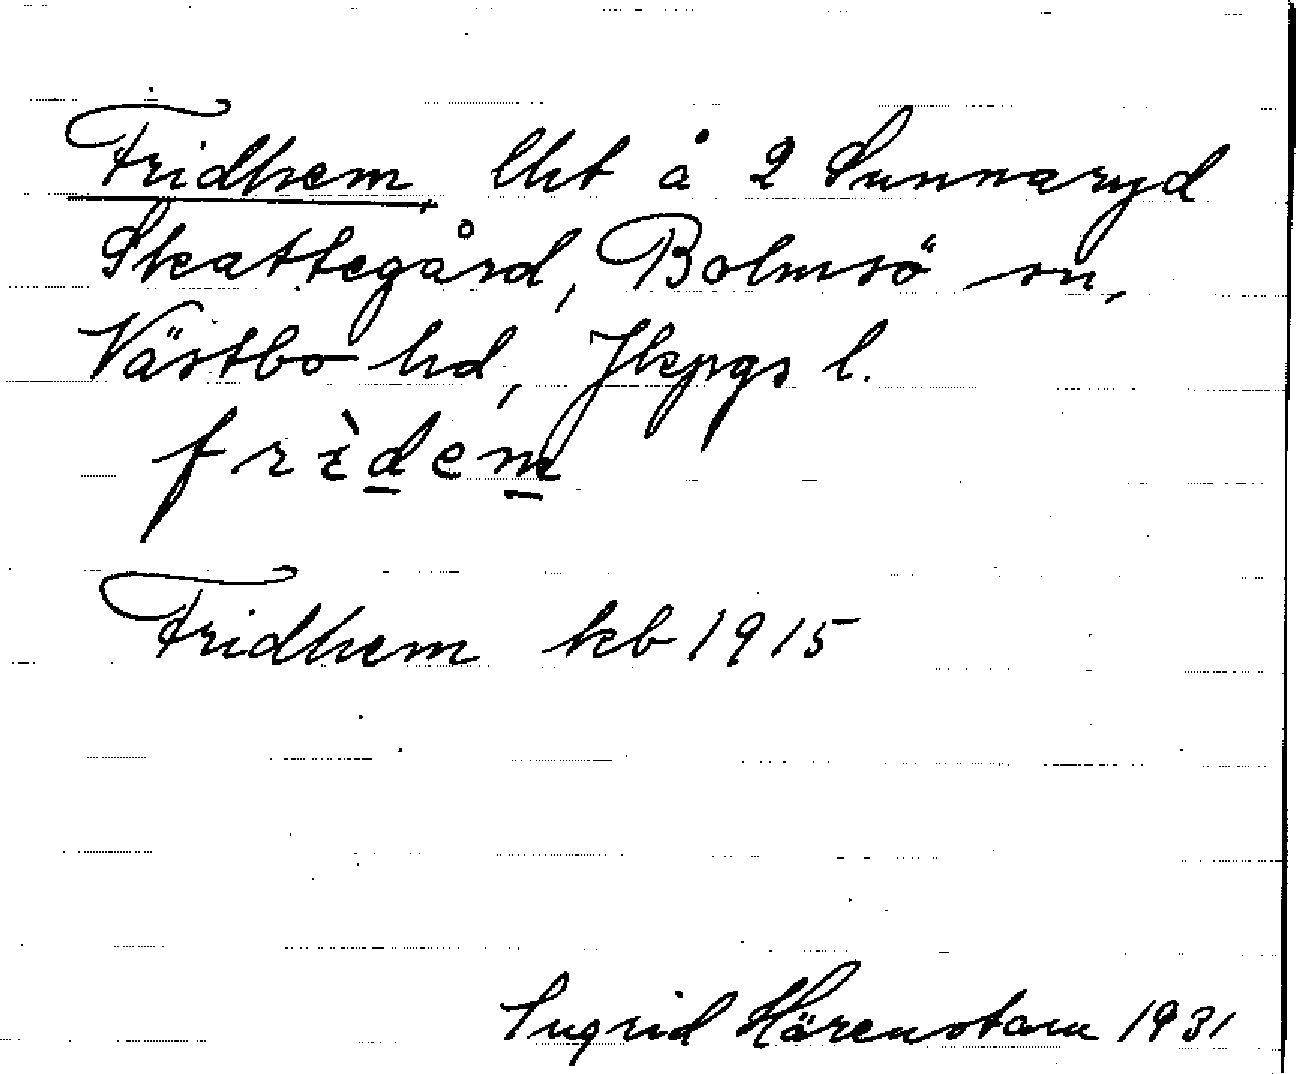 Fridhem, lht å 2 Sunnaryd
Skattegård, Bolmsö sn,
Västbo hd, Jkpgs l.
frìdem
Fridhem kb 1915
Ingrid Härenstam 1931